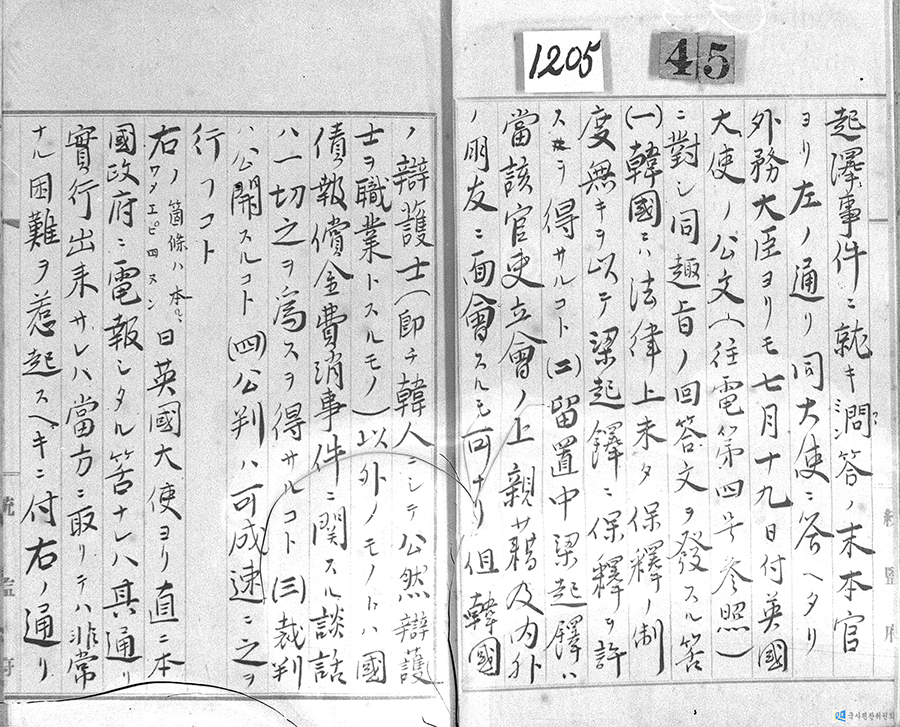 1205
45
起澤事件ニ就キ澗答ノ末本官
ヨリ左ノ通リ同大使ニ答ヘタリ
外務大臣ヨリモ七月十九日付英國
大使ノ公文(往電第四号参照)
ニ對シ同趣旨ノ回答文ヲ發スル筈
(一)韓國ニハ法律上未タ保釋ノ制
度無キヲ以テ梁起鐸ニ保釋ヲ許
スヲ得サルコト(二)留置中梁起鐸ハ
當該官吏立會ノ上親戚及内外
ノ朋友ニ面會スルモ可ナリ但韓國
ノ辯護士(即チ韓人ニシテ公然辯護
士ヲ職業トスルモノ)以外ノモノトハ國
債報償金費消事件ニ関スル談話
ハ一切之ヲ為スヲ得サルコト(三)裁判
ハ公開スルコト(四)公判ハ可成速ニ之ヲ
行フコト
右ノ箇條ハ本日英國大使ヨリ直ニ本
國政府ニ電報シタル筈ナレハ其通リ
實行出来サレハ當方ニ取リテハ非常
ナル困難ヲ惹起スヘキニ付右ノ通リ
統監府
統監府
국사편찬위원회